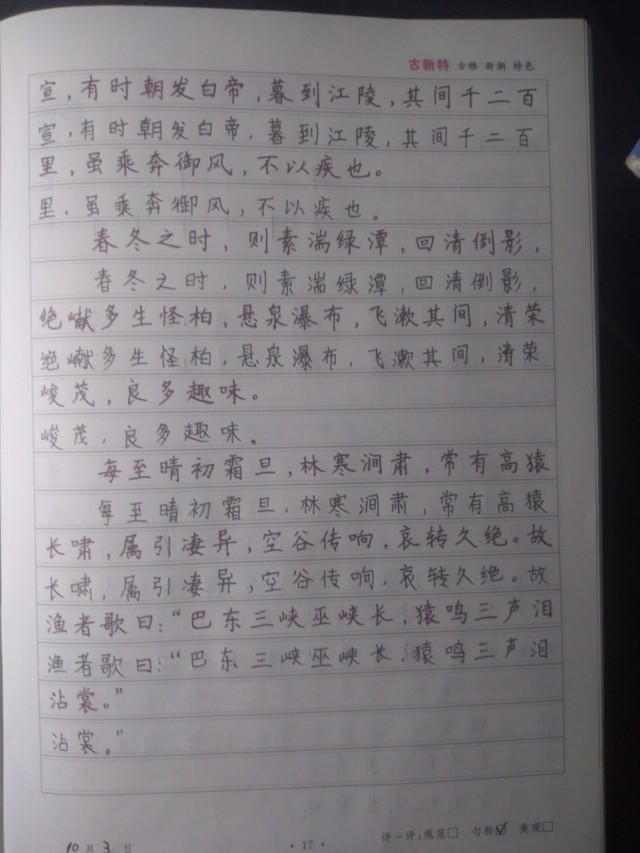 古新特 古雅 新潮 特色
宣，有时朝发白帝，暮到江陵，其间千二百
宣，有时朝发白帝，暮到江陵，其间千二百
里，虽乘奔御风，不以疾也。
里，虽乘奔御风，不以疾也。
春冬之时，则素湍绿潭，回清倒影，
春冬之时，则素湍绿潭，回清倒影，
绝巘多生怪柏，悬泉瀑布，飞漱其间，清荣
绝巘多生怪柏，悬泉瀑布，飞漱其间，清荣
峻茂，良多趣味。
峻茂，良多趣味。
每至晴初霜旦，林寒涧肃，常有高猿
每至晴初霜旦，林寒涧肃，常有高猿
长啸，属引凄异，空谷传响，哀转久绝。故
长啸，属引凄异，空谷传响，哀转久绝。故
渔者歌曰：“巴东三峡巫峡长，猿鸣三声泪
渔者歌曰：“巴东三峡巫峡长，猿鸣三声泪
沾裳。”
沾裳。”
评一评：规范□ 匀称☑ 美观□
10月3日 ·17·